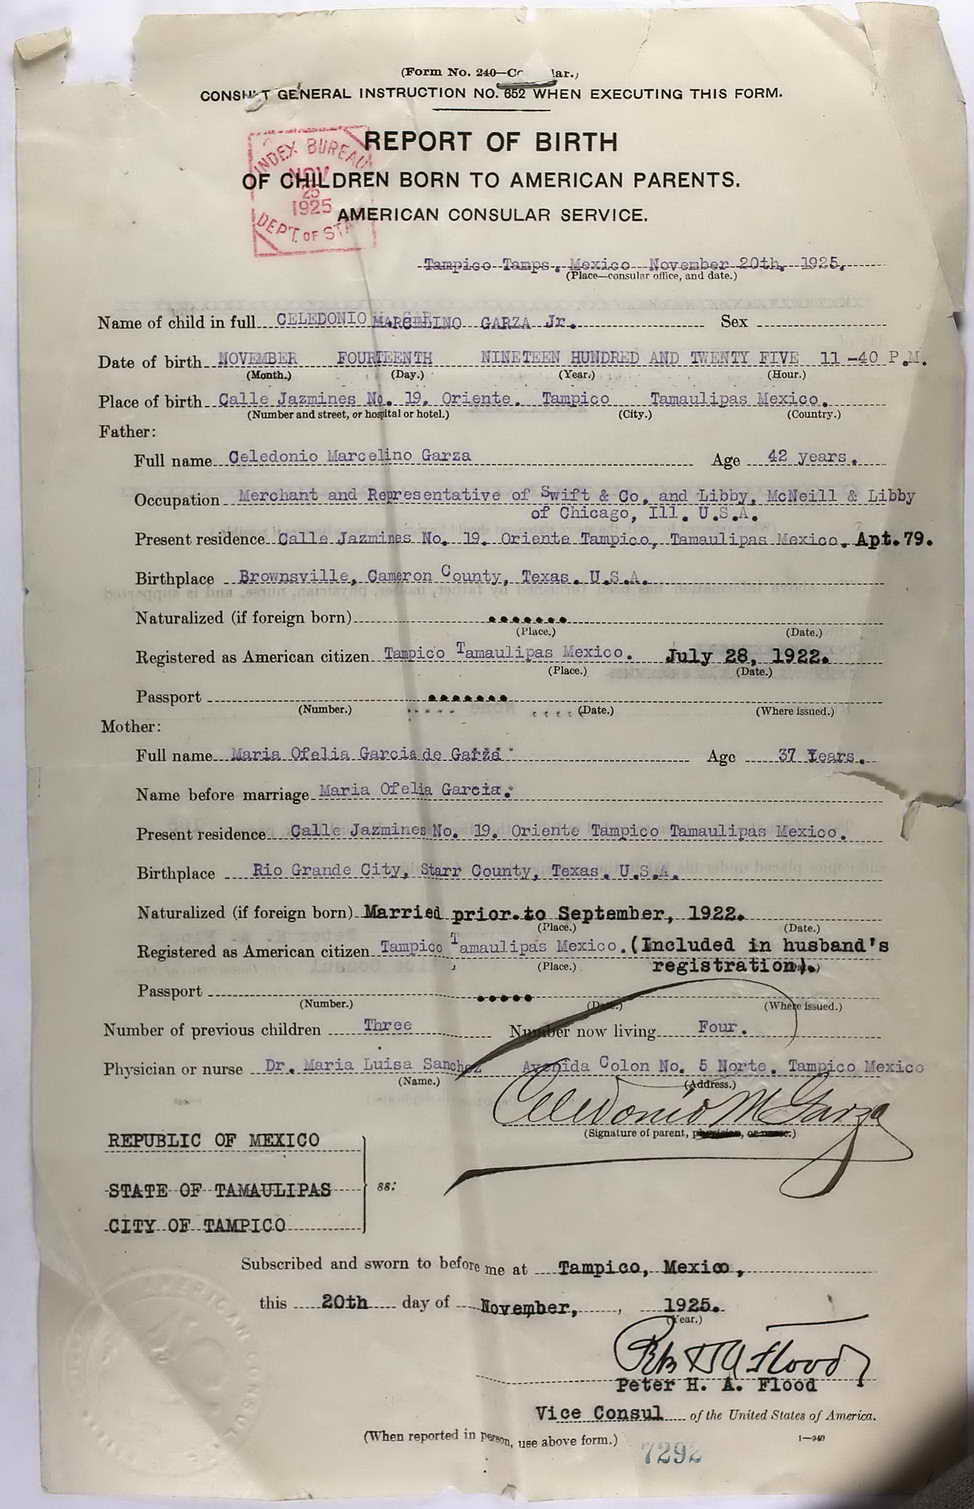 (Form No. 240—
CONSULT GENERAL INSTRUCTION NO. 652 WHEN EXECUTING THIS FORM.
REPORT OF BIRTH
OF CHILDREN BORN TO AMERICAN PARENTS.
AMERICAN CONSULAR SERVICE.
INDEX BUREAU
NOV
25
1925
DEPT. OF STATE
Tampico Tamps. Mexico November 20th, 1925.
(Place—consular office, and date.)
Name of child in full CELEDONIO MARCELINO GARZA Jr. Sex
Date of birth NOVEMBER FOURTEENTH NINETEEN HUNDRED AND TWENTY FIVE 11-40 P.M.
(Month.) (Day.) (Year.) (Hour.)
Place of birth Calle Jazmines No. 19. Oriente. Tampico Tamaulipas Mexico.
(Number and street, or hospital or hotel.) (City.) (Country.)
Father:
Full name Celedonio Marcelino Garza Age 42 years.
Occupation Merchant and Representative of Swift & Co. and Libby, McNeill & Libby
of Chicago, Ill. U.S.A.
Present residence Calle Jazmines No. 19. Oriente Tampico, Tamaulipas Mexico. Apt. 79.
Birthplace Brownsville, Cameron County, Texas. U.S.A.
Naturalized (if foreign born) .......
(Place.) (Date.)
Registered as American citizen Tampico Tamaulipas Mexico. July 28, 1922.
(Place.) (Date.)
Passport .......
(Number.) (Date.) (Where issued.)
Mother:
Full name Maria Ofelia Garcia de Garza Age 37 Years.
Name before marriage Maria Ofelia Garcia.
Present residence Calle Jazmines No. 19. Oriente Tampico Tamaulipas Mexico.
Birthplace Rio Grande City, Starr County, Texas. U.S.A.
Naturalized (if foreign born) Married prior to September, 1922.
(Place.) (Date.)
Registered as American citizen Tampico Tamaulipas Mexico. (Included in husband's
(Place.) registration).
Passport .....
(Number.) (Date.) (Where issued.)
Number of previous children Three Number now living Four.
Physician or nurse Dr. Maria Luisa Sanchez Avenida Colon No. 5 Norte. Tampico Mexico
(Name.) (Address.)
Celedonio M Garza
(Signature of parent, physician, or nurse.)
REPUBLIC OF MEXICO
STATE OF TAMAULIPAS ss:
CITY OF TAMPICO
Subscribed and sworn to before me at Tampico, Mexico,
this 20th day of November, , 1925.
(Year.)
Peter H. A. Flood
Vice Consul of the United States of America.
(When reported in person, use above form.) 1—940
7292